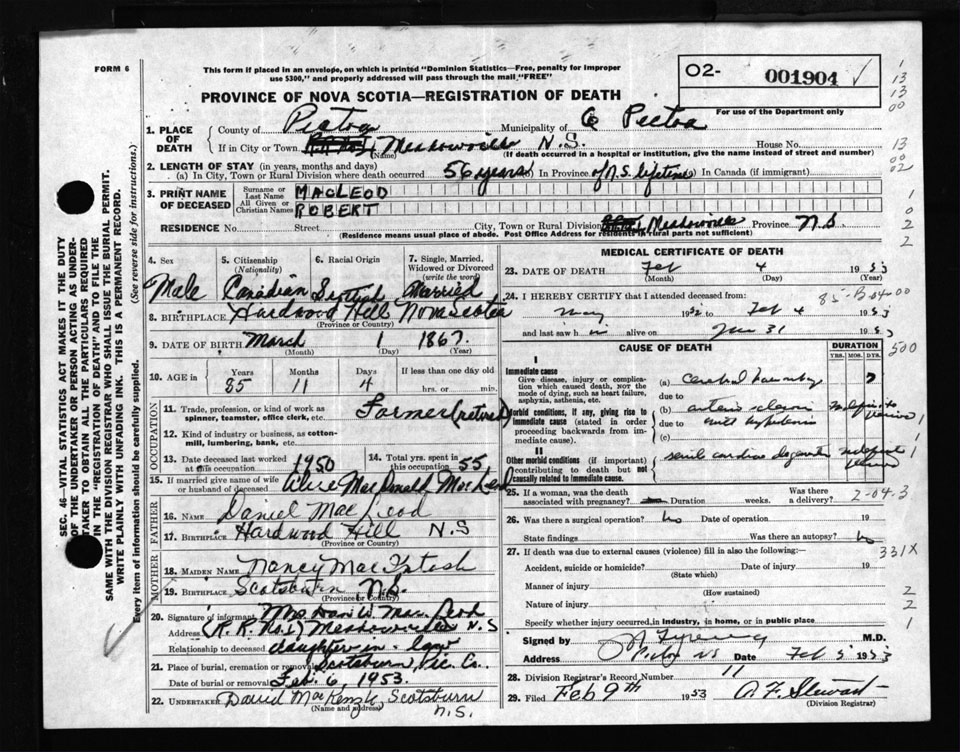 FORM 6
This form if placed in an envelope, on which is printed "Dominion Statistics—Free, penalty for improper
use $300," and properly addressed will pass through the mail "FREE"
O2- 001904 ✓
For use of the Department only
PROVINCE OF NOVA SCOTIA—REGISTRATION OF DEATH
1. PLACE OF DEATH
County of Pictou Municipality of Co Pictou
If in City or Town Meadowville N.S. House No.
(Name) (If death occurred in a hospital or institution, give the name instead of street and number)
2. LENGTH OF STAY (in years, months and days)
(a) In City, Town or Rural Division where death occurred 56 years In Province of N.S. lifetime In Canada (if immigrant)
3. PRINT NAME OF DECEASED
Surname or Last Name MACLEOD
All Given or Christian Names ROBERT
RESIDENCE No. Street City, Town or Rural Division Meadowville Province N.S
(Residence means usual place of abode. Post Office Address for residents in rural parts not sufficient)
4. Sex Male
5. Citizenship (Nationality) Canadian
6. Racial Origin Scottish
7. Single, Married, Widowed or Divorced (write the word) Married
8. BIRTHPLACE Hardwood Hill Nova Scotia
(Province or Country)
9. DATE OF BIRTH March 1 1867
(Month) (Day) (Year)
10. AGE in Years 85 Months 11 Days 4 If less than one day old hrs. or min.
OCCUPATION
11. Trade, profession, or kind of work as spinner, teamster, office clerk, etc. Farmer (retired)
12. Kind of industry or business, as cotton-mill, lumbering, bank, etc.
13. Date deceased last worked at this occupation 1950
14. Total yrs. spent in this occupation 55
15. If married give name of wife or husband of deceased MacDonald MacLeod
FATHER
16. NAME Daniel MacLeod
17. BIRTHPLACE Hardwood Hill N.S
(Province or Country)
MOTHER
18. MAIDEN NAME Nancy MacIntosh
19. BIRTHPLACE Scotsburn N.S.
(Province or Country)
20. Signature of informant Mrs. Dan W. MacLeod
Address (R.R. No.1) Meadowville N.S
Relationship to deceased daughter-in-law
21. Place of burial, cremation or removal Scotsburn, Pic. Co.,
Date of burial or removal Feb. 6, 1953.
22. UNDERTAKER David MacKenzie, Scotsburn
(Name and address) N.S.
MEDICAL CERTIFICATE OF DEATH
23. DATE OF DEATH Feb 4 1953
(Month) (Day) (Year)
24. I HEREBY CERTIFY that I attended deceased from 85-B-04-00
May 1952 to Feb 4 1953
and last saw him alive on Jan 31 1953
CAUSE OF DEATH
DURATION
YRS. MOS. DYS.
500
I
Immediate cause
Give disease, injury or complication which caused death, not the mode of dying, such as heart failure, asphyxia, asthenia, etc.
(a) Cerebral
due to
Morbid conditions, if any, giving rise to immediate cause (stated in order proceeding backwards from immediate cause).
(b) arterio sclerosis
due to
(c)
II
Other morbid conditions (if important) contributing to death but not causally related to immediate cause.
senile cardiac
25. If a woman, was the death associated with pregnancy? Duration weeks. Was there a delivery? 2-04-3
26. Was there a surgical operation? No Date of operation 19
State findings Was there an autopsy? No
27. If death was due to external causes (violence) fill in also the following:— 331X
Accident, suicide or homicide? Date of injury 19
(State which)
Manner of injury
(How sustained)
Nature of injury
Specify whether injury occurred in industry, in home, or in public place
Signed by M.D.
Address Pictou NS Date Feb 5 1953
28. Division Registrar's Record Number 11
29. Filed Feb 9th 1953 A F Stewart
(Division Registrar)
SEC. 46— VITAL STATISTICS ACT MAKES IT THE DUTY
OF THE UNDERTAKER OR PERSON ACTING AS UNDER-
TAKER TO OBTAIN ALL THE PARTICULARS REQUIRED
IN THE "REGISTRATION OF DEATH" AND TO FILE THE
SAME WITH THE DIVISION REGISTRAR WHO SHALL ISSUE THE BURIAL PERMIT.
WRITE PLAINLY WITH UNFADING INK. THIS IS A PERMANENT RECORD.
Every item of information should be carefully supplied. (See reverse side for instructions.)